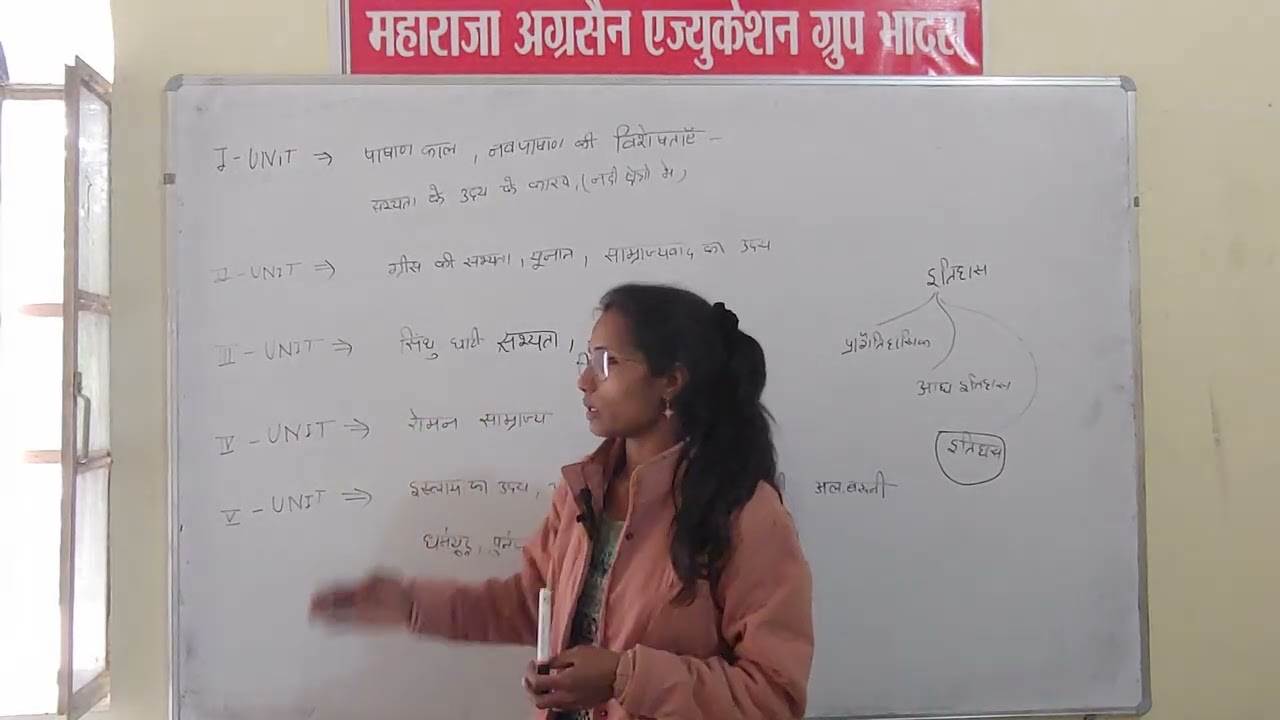 महाराजा अग्रसैन एज्युकेशन ग्रुप भादरा
I - UNIT ⇒ पाषाण काल , नवपाषाण की विशेषताएँ -
सभ्यता के उदय के कारण, (नदी क्षेत्रो मे)
II - UNIT ⇒ ग्रीस की सभ्यता , यूनान , साम्राज्यवाद का उदय
III - UNIT ⇒ सिंधु घाटी सभ्यता ,
IV - UNIT ⇒ रोमन साम्राज्य
V - UNIT ⇒ इस्लाम का उदय , अलबरुनी
धर्मयुद्ध ,
इतिहास
प्रागैतिहासिक
आद्य इतिहास
इतिहास